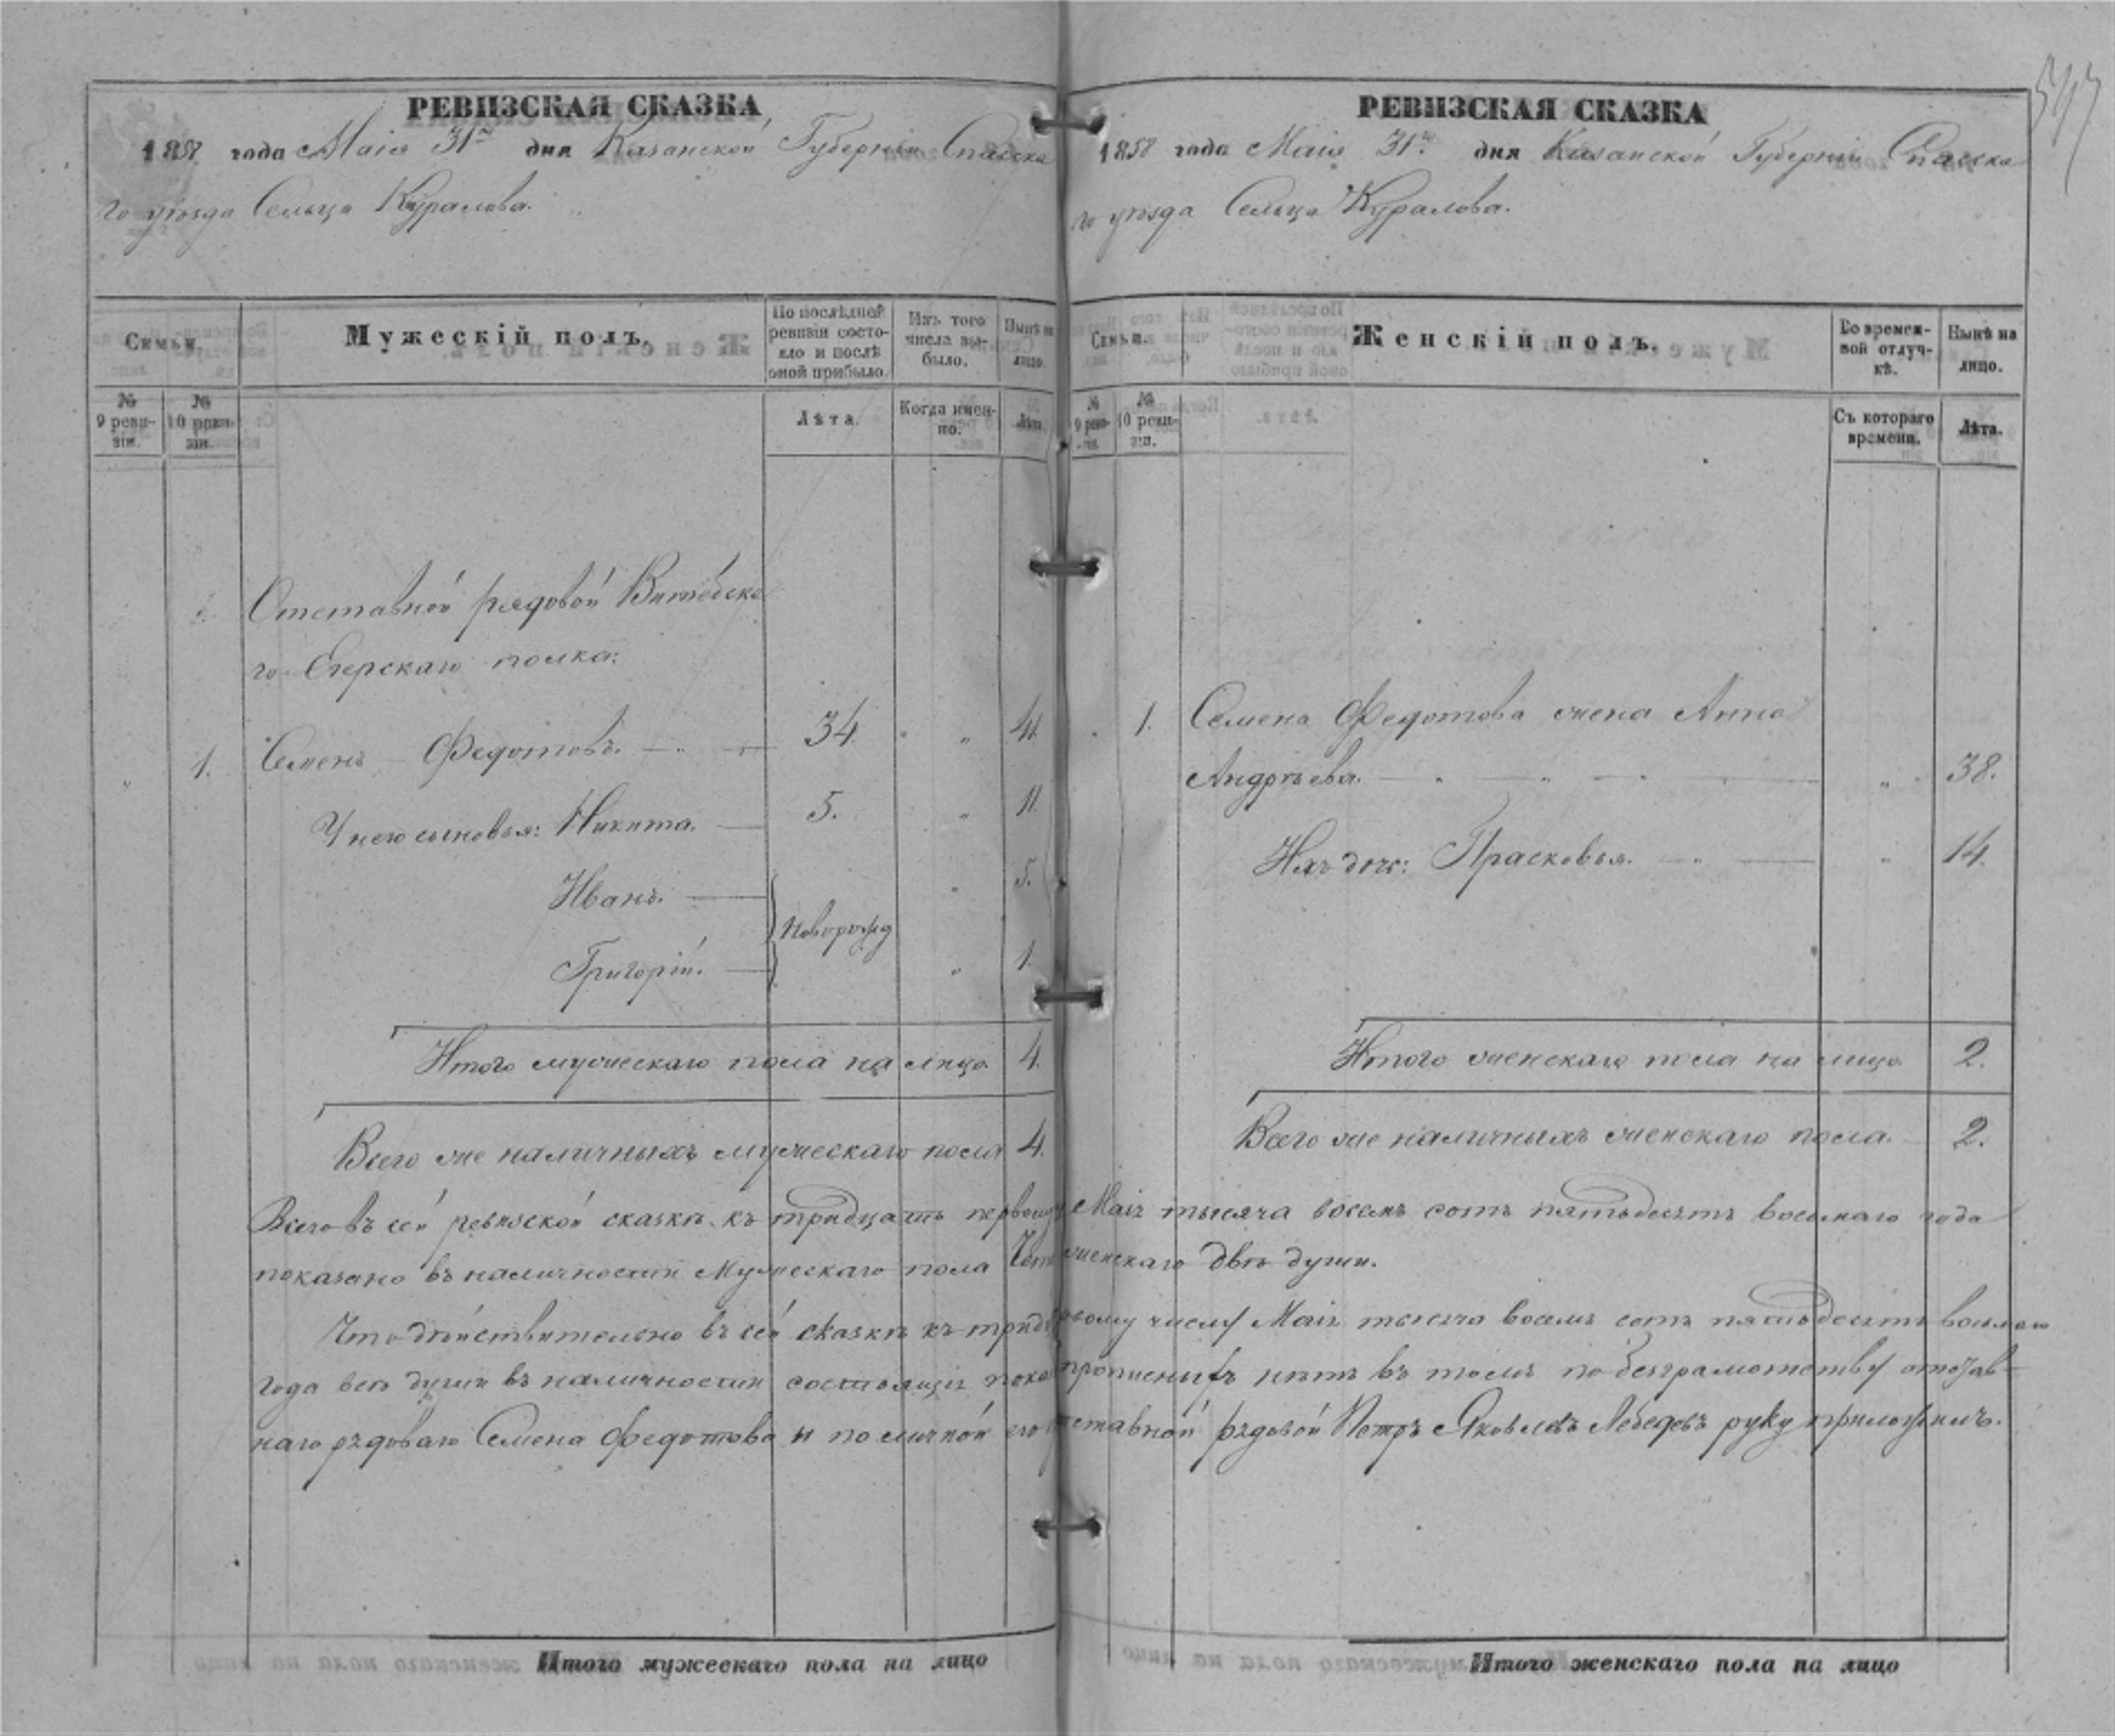 РЕВИЗСКАЯ СКАЗКА
1858 года Маія 31го дня Казанской Губерніи Спасска
го уѣзда Сельца Куралова.
Семьи.
Мужескій полъ.
По послѣдней ревизіи состояло и послѣ оной прибыло.
Изъ того числа выбыло.
Нынѣ на лицо.
№ 9 ревизіи.
№ 10 ревизіи.
Лѣта.
Когда именно.
Лѣта.
Отставной рядовой Витебска
го Егерскаго полка:
1. Семенъ Федотовъ. 34. 41.
У него сыновья: Никита. 5. 11.
Иванъ. 5.
Новорожд
Григорій. 1.
Итого мужескаго пола на лицо. 4.
Всего же наличныхъ мужескаго пола 4.
Всего въ сей ревизской сказкѣ къ тридцать первому
показано въ наличности мужескаго пола
Что дѣйствительно въ сей сказкѣ къ
года всѣ души въ наличности состоящія
наго рядоваго Семена Федотова и по личной его
Итого мужескаго пола на лицо
547
РЕВИЗСКАЯ СКАЗКА
1858 года Маія 31го дня Казанской Губерніи Спасска
го уѣзда Сельца Куралова.
Семьи.
Женскій полъ.
Во временной отлучкѣ.
Нынѣ на лицо.
№ 9 ревизіи.
№ 10 ревизіи.
Съ котораго времени.
Лѣта.
1. Семена Федотова жена Анна
Андрѣева. 38.
Ихъ дочь: Прасковья. 14.
Итого женскаго пола на лицо. 2.
Всего же наличныхъ женскаго пола. 2.
Маія тысяча восемь сотъ пятьдесятъ восьмаго года
женскаго двѣ души.
числу Маія тысяча восемь сотъ пятьдесятъ восьмаго
нѣтъ въ томъ по безграмотству отстав-
рядовой Петръ Яковлевъ Лебедевъ руку приложилъ.
Итого женскаго пола на лицо